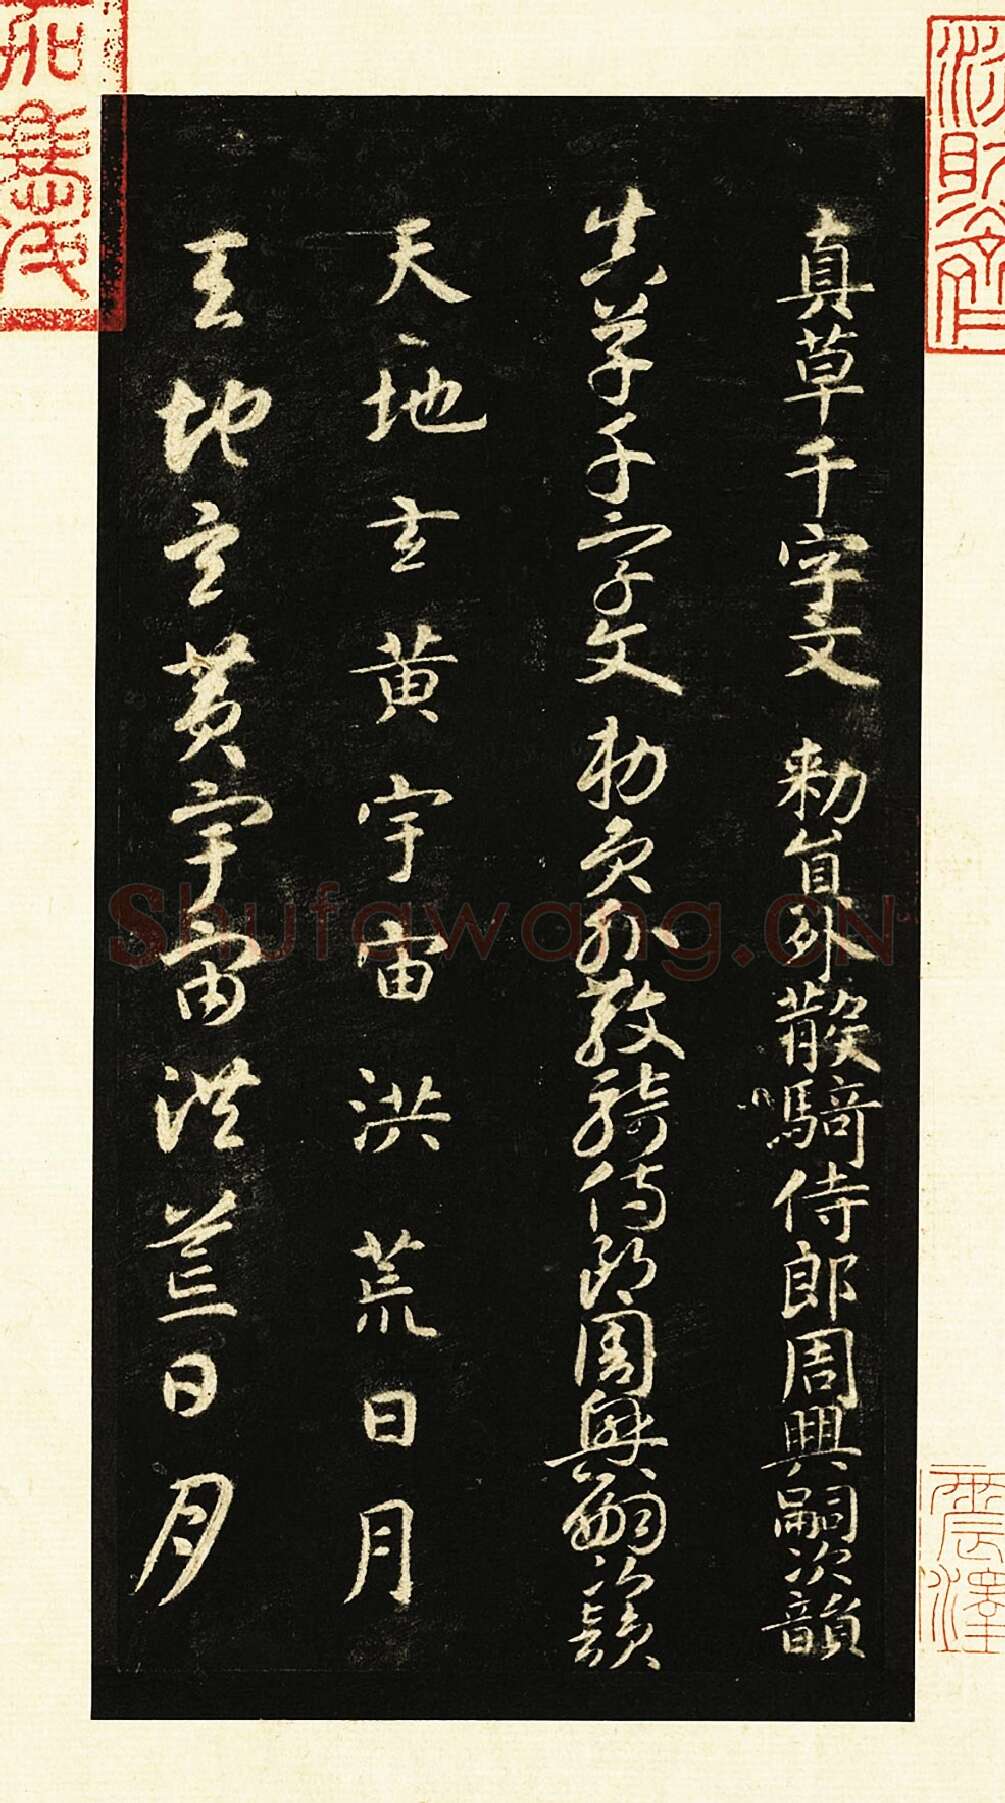 真草千字文 勅員外散騎侍郎周興嗣次韻
真草千字文 勅員外散騎侍郎周興嗣次韻
天地玄黄宇宙洪荒日月
天地玄黄宇宙洪荒日月
Shufawang.CN
震澤